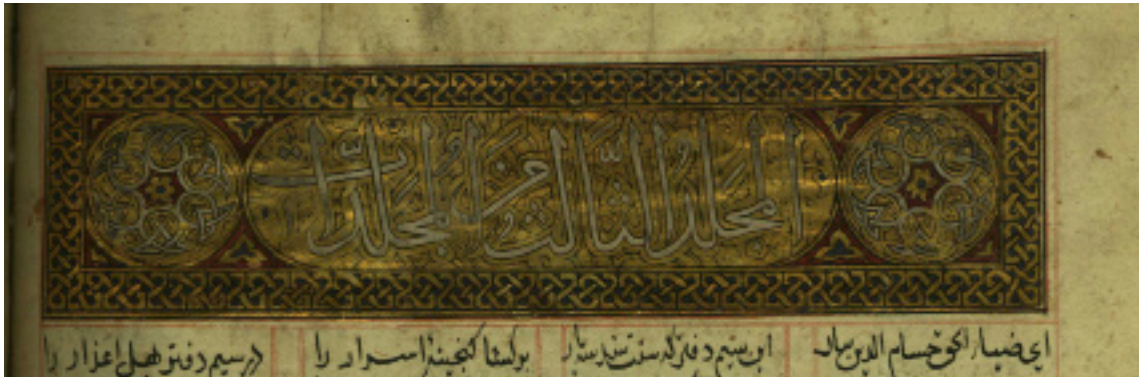 المجلد الثالث من المجلدات
ای ضیاء الحق حسام الدین بیار این سیم دفتر که سنت شد سه بار
برگشا گنجینهٔ اسرار را در سیم دفتر بهل اعذار را